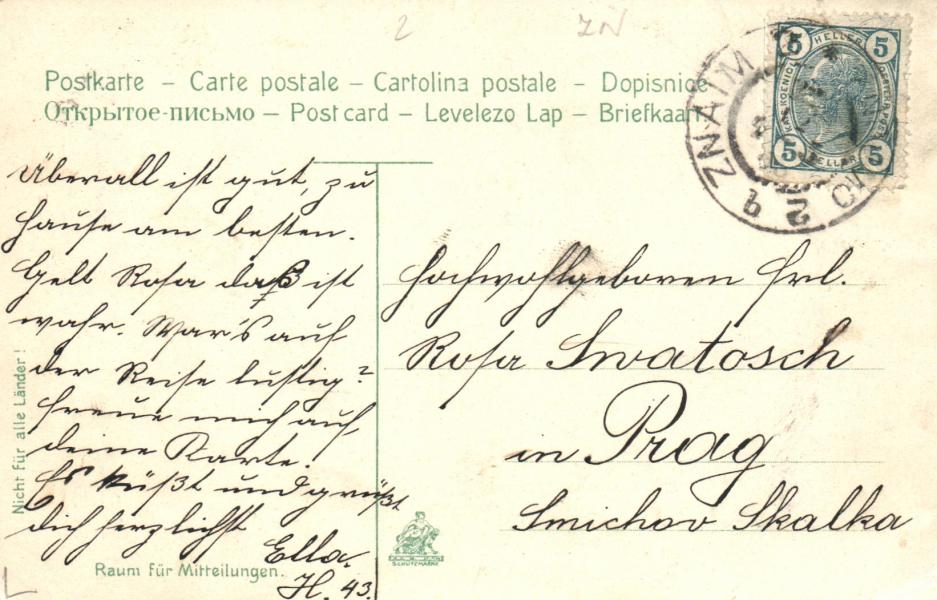 2 ZN
Postkarte – Carte postale – Cartolina postale – Dopisnice
Открытое-письмо – Postcard – Levelezo Lap – Briefkaart
5 HELLER 5
5 HELLER 5
ZNAIM
Überall ist gut, zu
Hause am besten.
Gelt Rosa daß ist
wahr. War's auf
der Reise lustig?
Freue mich auf
deine Karte.
Es küßt und grüßt
dich herzlichst
Ella
H. 43.
Hochwohlgeboren Frl.
Rosa Swatosch
in Prag
Smichov Skalka
Nicht für alle Länder!
Raum für Mitteilungen.
SCHUTZMARKE